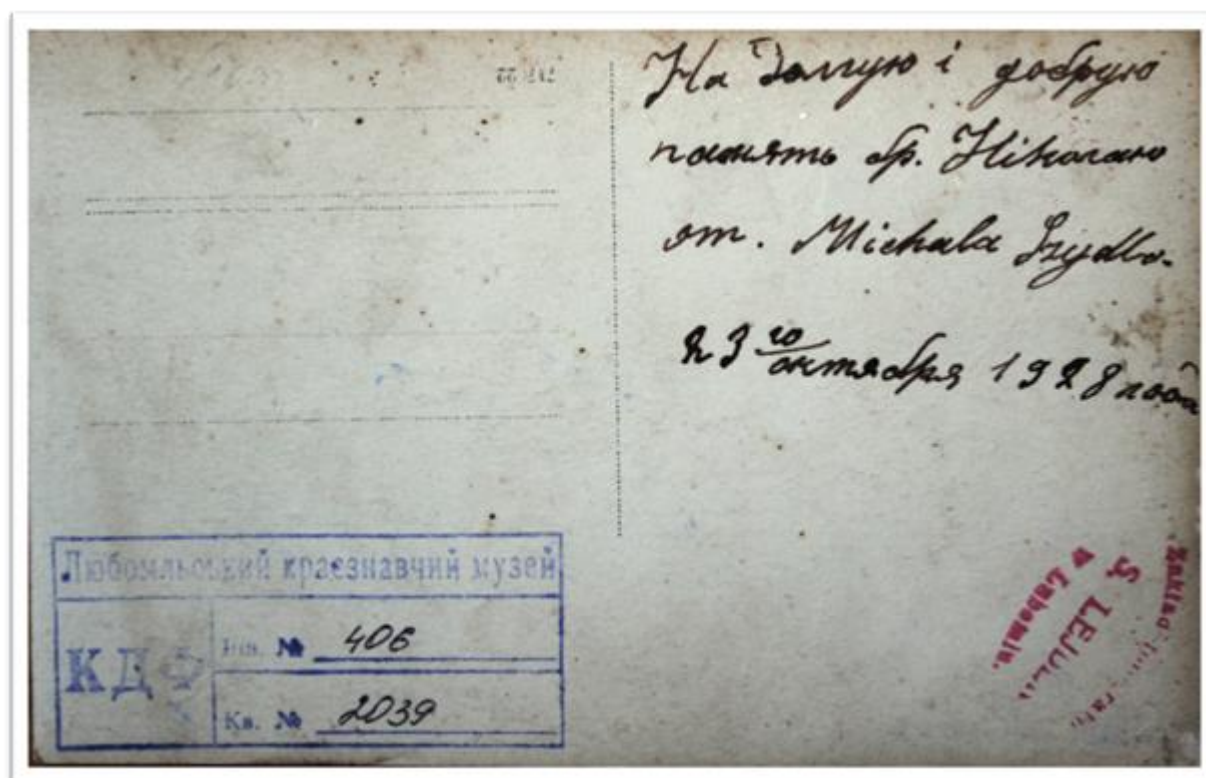 На долгую і добрую
память бр. Ніколаю
от. Michala Szydlo.
23 го октября 1928 года
Любомльський краєзнавчий музей
КДФ
Інв. № 406
Кв. № 2039
Zakład
S. LEJDER
w Lubomlu.